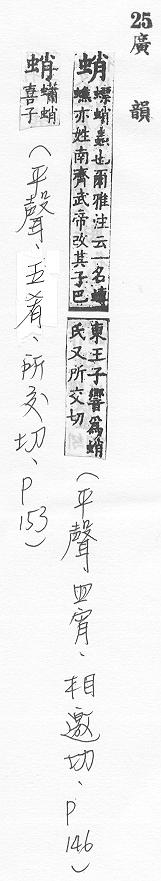 25 廣韻
蛸
螵蛸蟲也爾雅注云一名蟳
蟭亦姓南齊武帝改其子巴
東王子響為蛸
氏又所交切
(平聲、四宵、相邀切、p146)
蛸
蠨蛸
喜子
(平聲、五肴、所交切、p153)